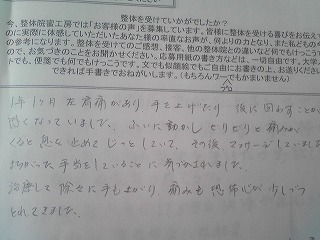 整体を受けていかがでしたか？
今、整体院蜜工房では「お客様の声」を募集しています。皆様に整体を受ける喜びをお伝え
のに実際に体感していただいたあなた様の率直なお声が、何よりの力となり、また私どもの
の参考になります。整体を受けてのご感想、接客、他の整体院との違いなど何でもけっこう
ので、お気づきのことをお聞かせください。応募用紙の書き方などは、一切自由です。大学
トでも、便箋でも何でもけっこうです。文でも似顔絵でもご自由にお書きの上、お送りください
できれば手書きでおねがいします。（もちろんワープロでもかまいません）
1年1ヶ月 左肩痛があり 手を上げたり 後に回すことが
恐くなっていました。 ふいに動かし ビリビリと痛みが
くると 息を止めて じっとしていて、その後 マッサージしていました
まちがった手当をしていることに気づかされました。
治療して 徐々に手も上がり、痛みも 恐怖心が 少しづつ
とれてきました。